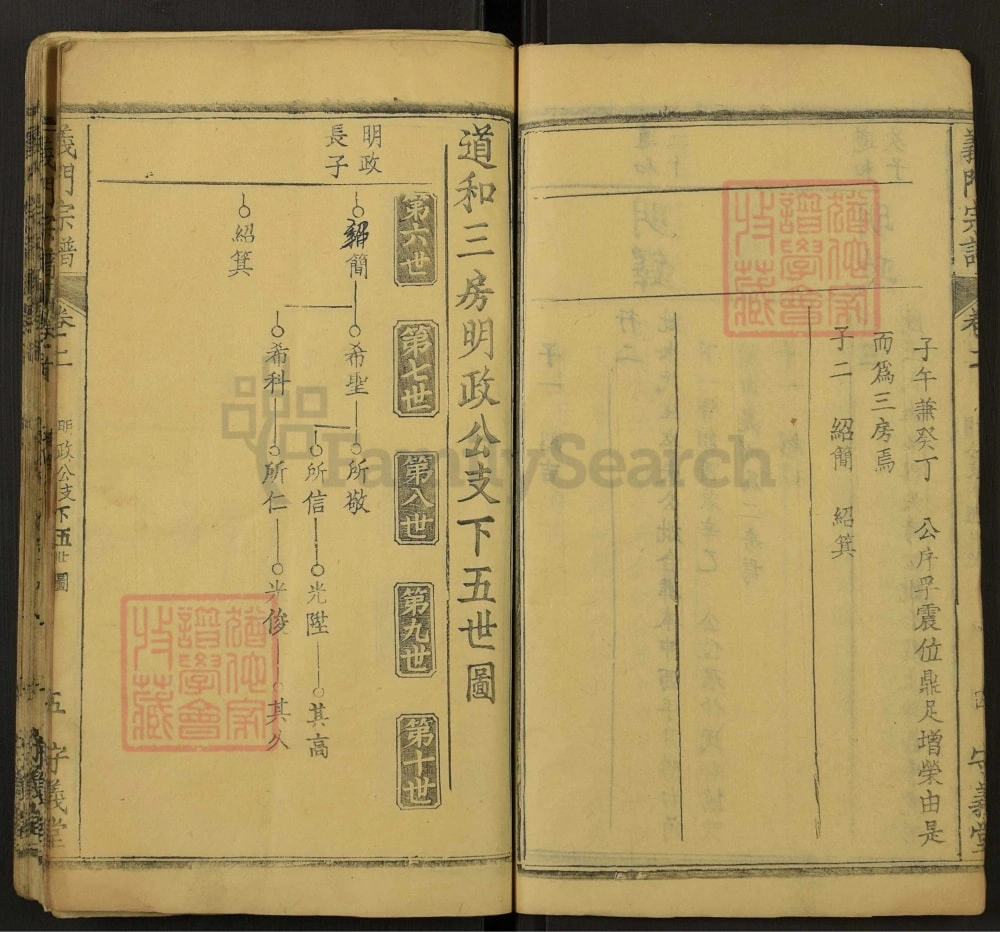 子午兼癸丁 公序乎震位鼎足增榮由是
而爲三房焉
子二 紹簡 紹箕
義門宗譜
守義堂
道和三房明政公支下五世圖
第六世 第七世 第八世 第九世 第十世
明政
長子
紹簡 希聖 所敬
所信 光陞 其高
希科 所仁 光俊 其久
紹箕
義門宗譜 卷二上 明政公支下五世圖 五 守義堂
猶他家譜學會收藏
猶他家譜學會收藏
FamilySearch